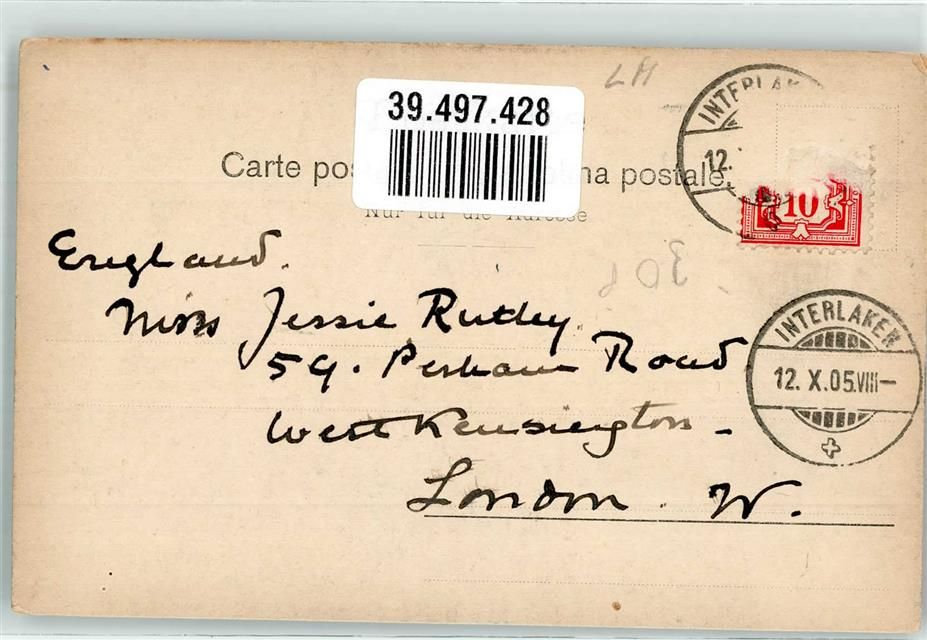 LH
39.497.428
INTERLAK
12.
Carte pos na postale.
Nur für die Adresse
10
England.
306
Miss Jessie Rutley
59. Perham Road
West Kensington -
London. W.
INTERLAKEN
12. X.05.VIII-